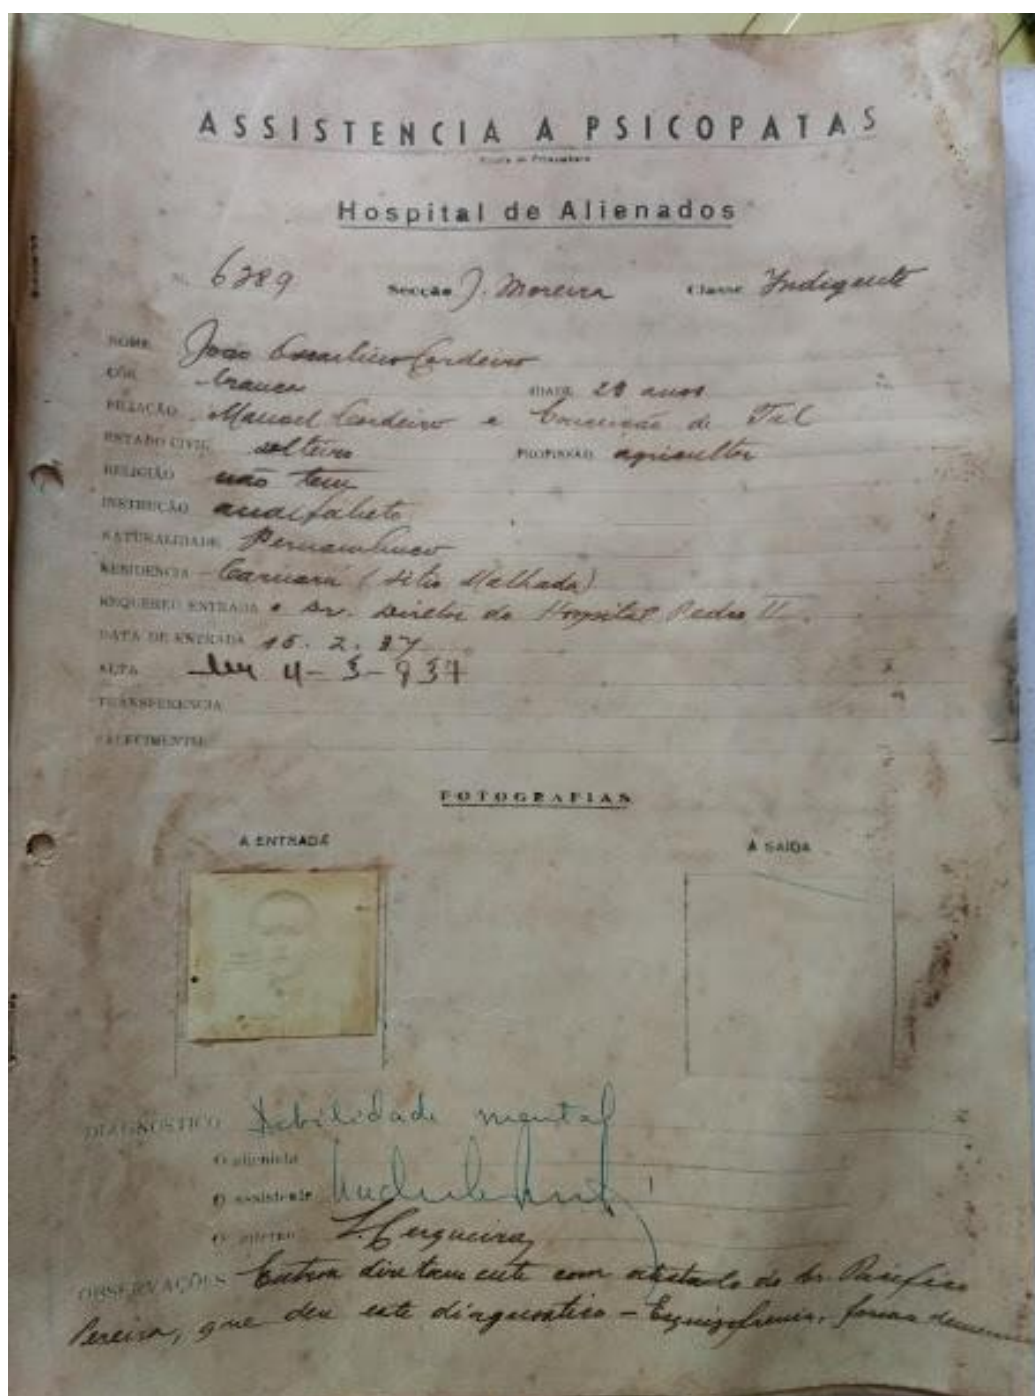 ASSISTENCIA A PSICOPATAS
Hospital de Alienados
N. 6289 Secção J. Moreira Classe Indigente
NOME João Cordeiro
CÔR branca IDADE 28 anos
FILIAÇÃO Manoel Cordeiro e Conceição de Tal
ESTADO CIVIL solteiro PROFISSÃO agricultor
RELIGIÃO não tem
INSTRUÇÃO analfabeto
NATURALIDADE Pernambuco
RESIDENCIA Caruarú (Sitio Malhada)
REQUEREU ENTRADA o Dr. Diretor do Hospital Pedro II.
DATA DE ENTRADA 15.2.37
ALTA em 4-3-937
TRANSFERENCIA
FALECIMENTO
FOTOGRAFIAS
A ENTRADA A SAÍDA
DIAGNOSTICO Debilidade mental
O alienista
O assistente
O interno L. Cerqueira
OBSERVAÇÕES Entrou diretamente com atestado do Dr. Pacifico
Pereira, que deu este diagnostico - Esquizofrenia, forma